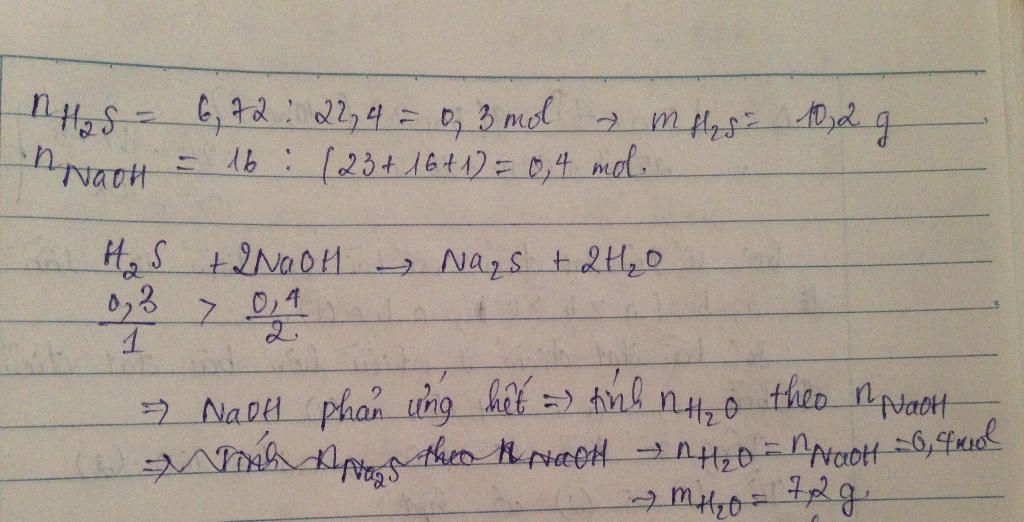 nH₂S = 6,72 : 22,4 = 0,3 mol → mH₂S = 10,2 g
nNaOH = 16 : (23+16+1) = 0,4 mol.
H₂S + 2NaOH → Na₂S + 2H₂O
0,3/1 > 0,4/2
⇒ NaOH phản ứng hết ⇒ tính nH₂O theo nNaOH
⇒ Tính nNa₂S theo nNaOH → nH₂O = nNaOH = 0,4 mol
→ mH₂O = 7,2 g.